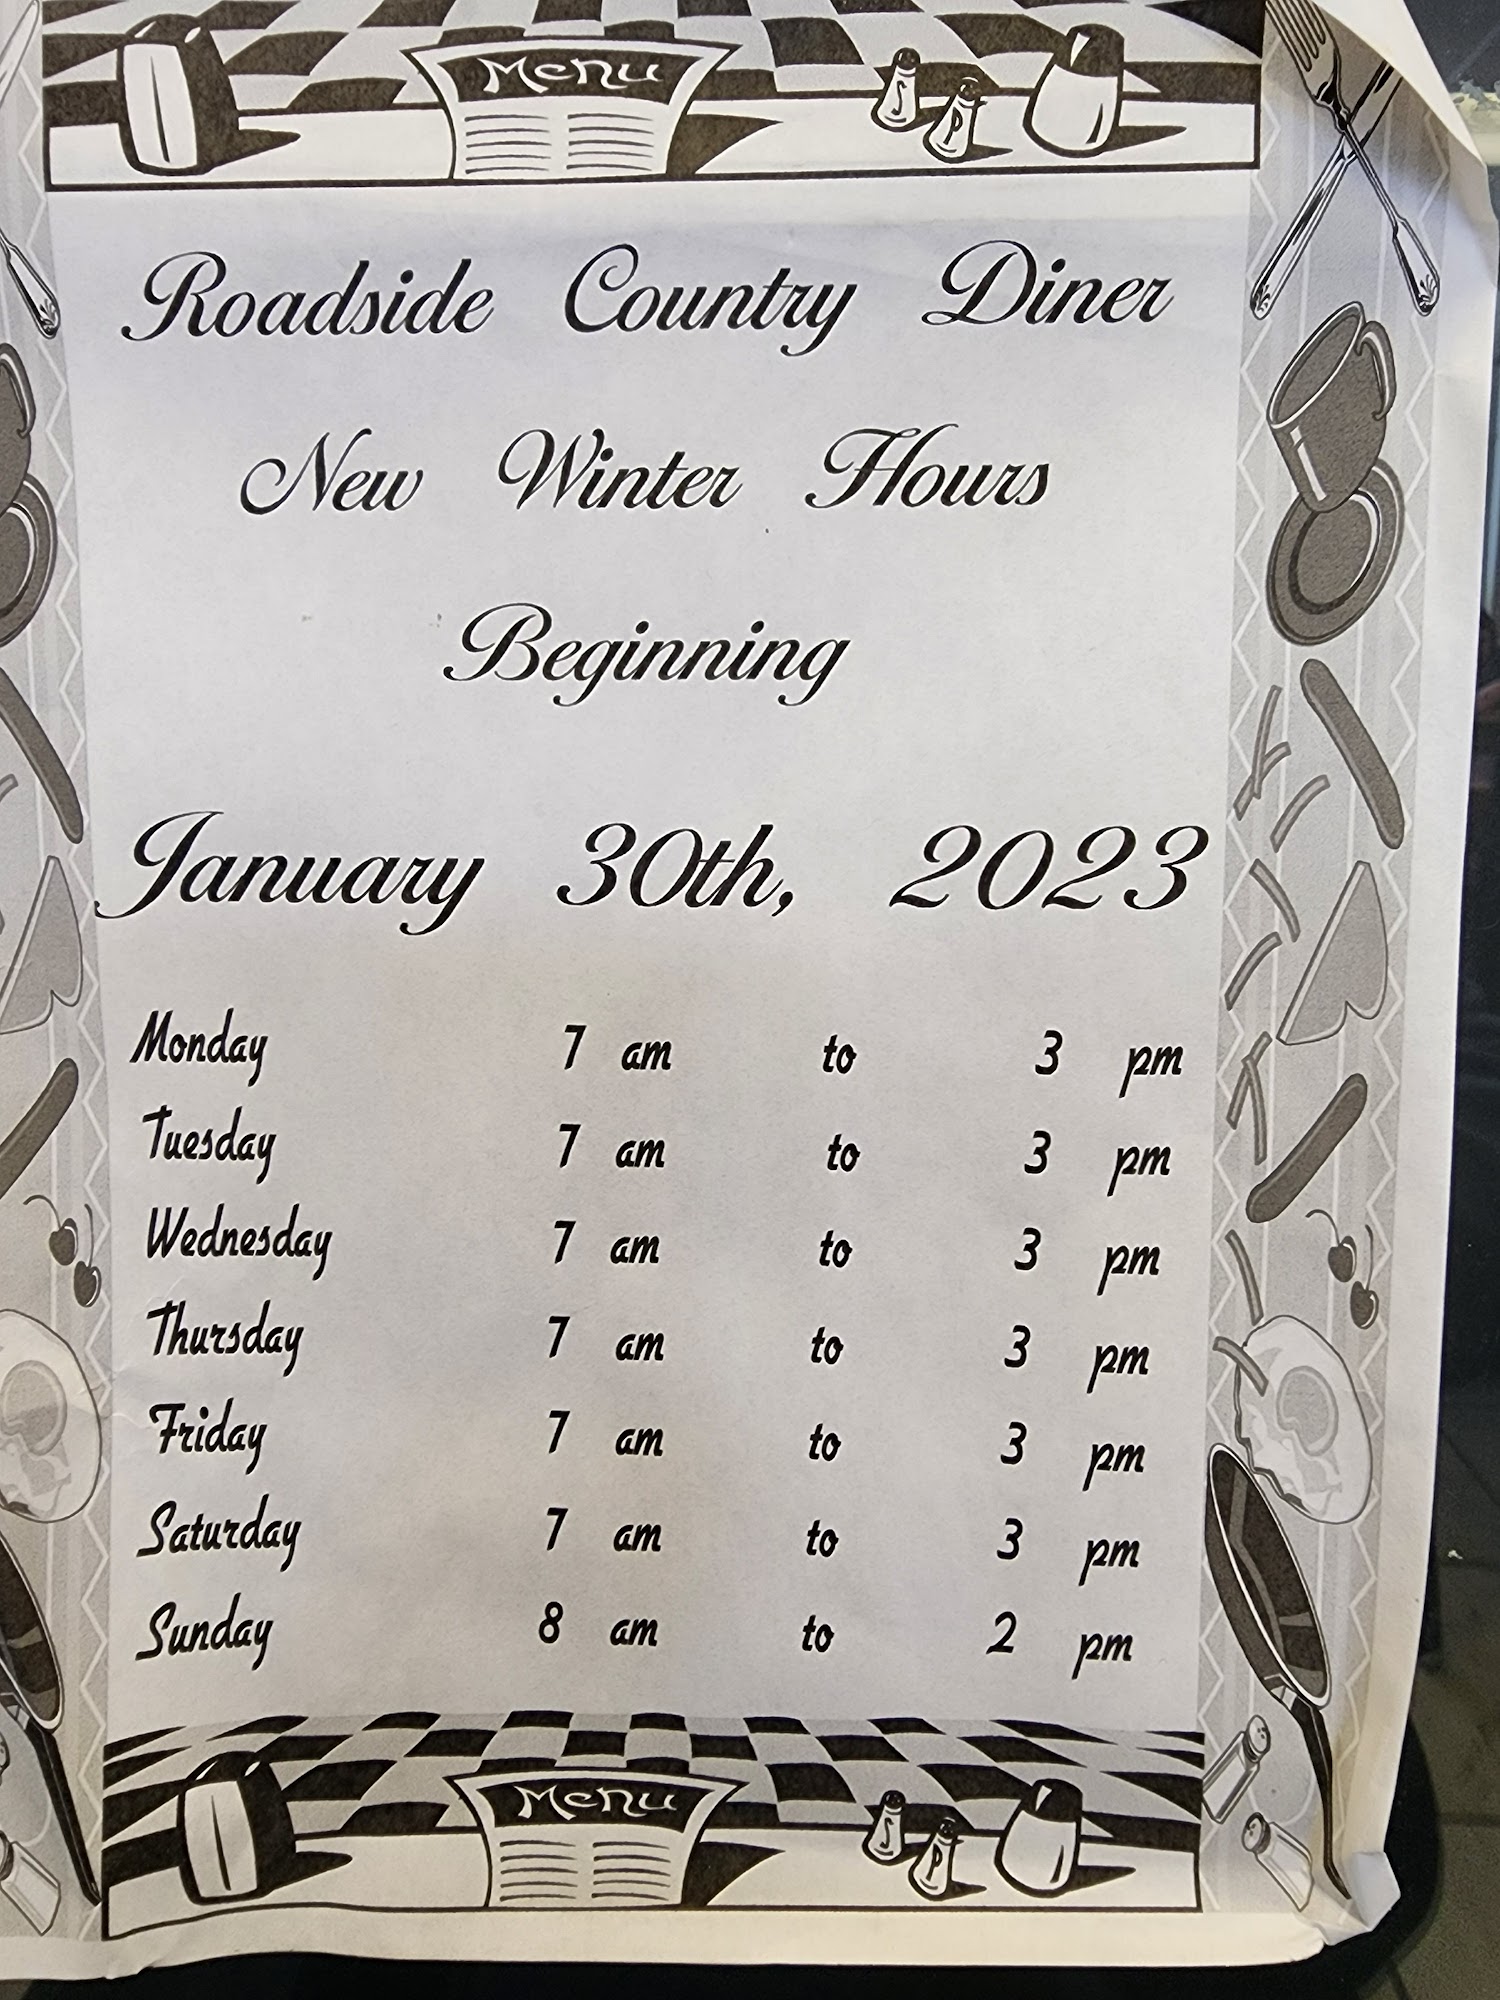 Menu
Roadside Country Diner
New Winter Hours
Beginning
January 30th, 2023
Monday 7 am to 3 pm
Tuesday 7 am to 3 pm
Wednesday 7 am to 3 pm
Thursday 7 am to 3 pm
Friday 7 am to 3 pm
Saturday 7 am to 3 pm
Sunday 8 am to 2 pm
Menu